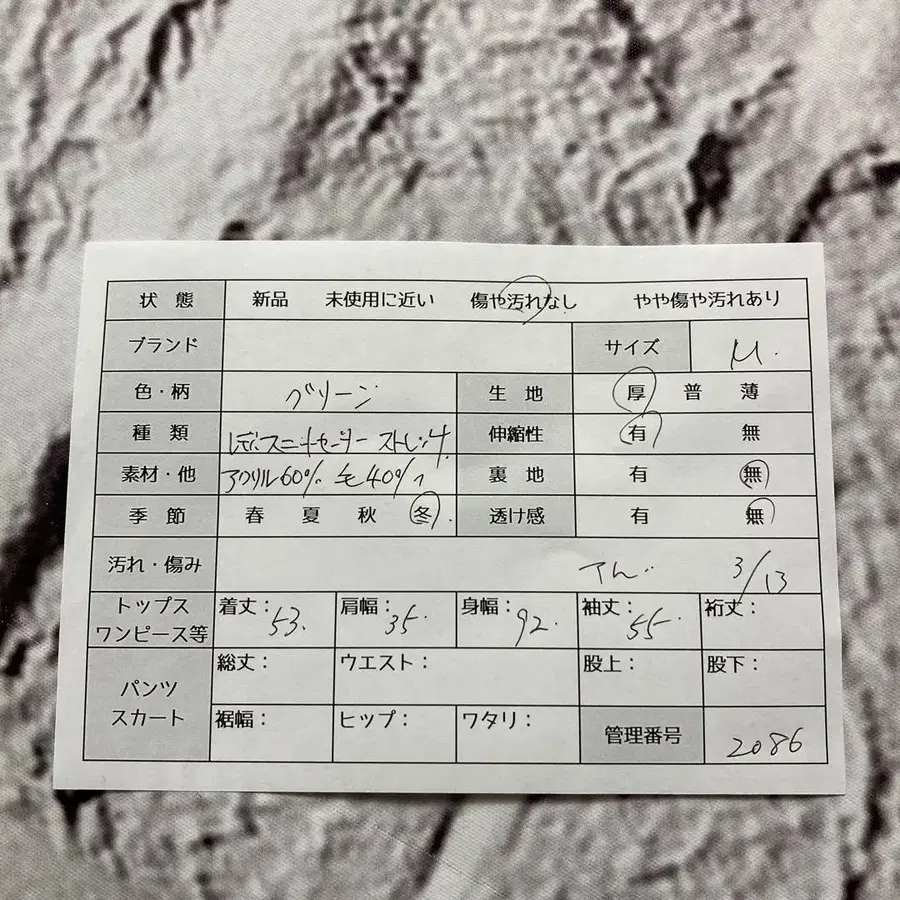 状態 新品 未使用に近い 傷や汚れなし やや傷や汚れあり
ブランド サイズ M.
色・柄 グリーン 生地 厚 普 薄
種類 レディスニットセーター ストレッチ 伸縮性 有 無
素材・他 アクリル60% 毛40% 裏地 有 無
季節 春 夏 秋 冬 透け感 有 無
汚れ・傷み 3/13
トップス ワンピース等 着丈：53. 肩幅：35. 身幅：92. 袖丈：55. 裄丈：
パンツ スカート 総丈： ウエスト： 股上： 股下：
裾幅： ヒップ： ワタリ： 管理番号 2086